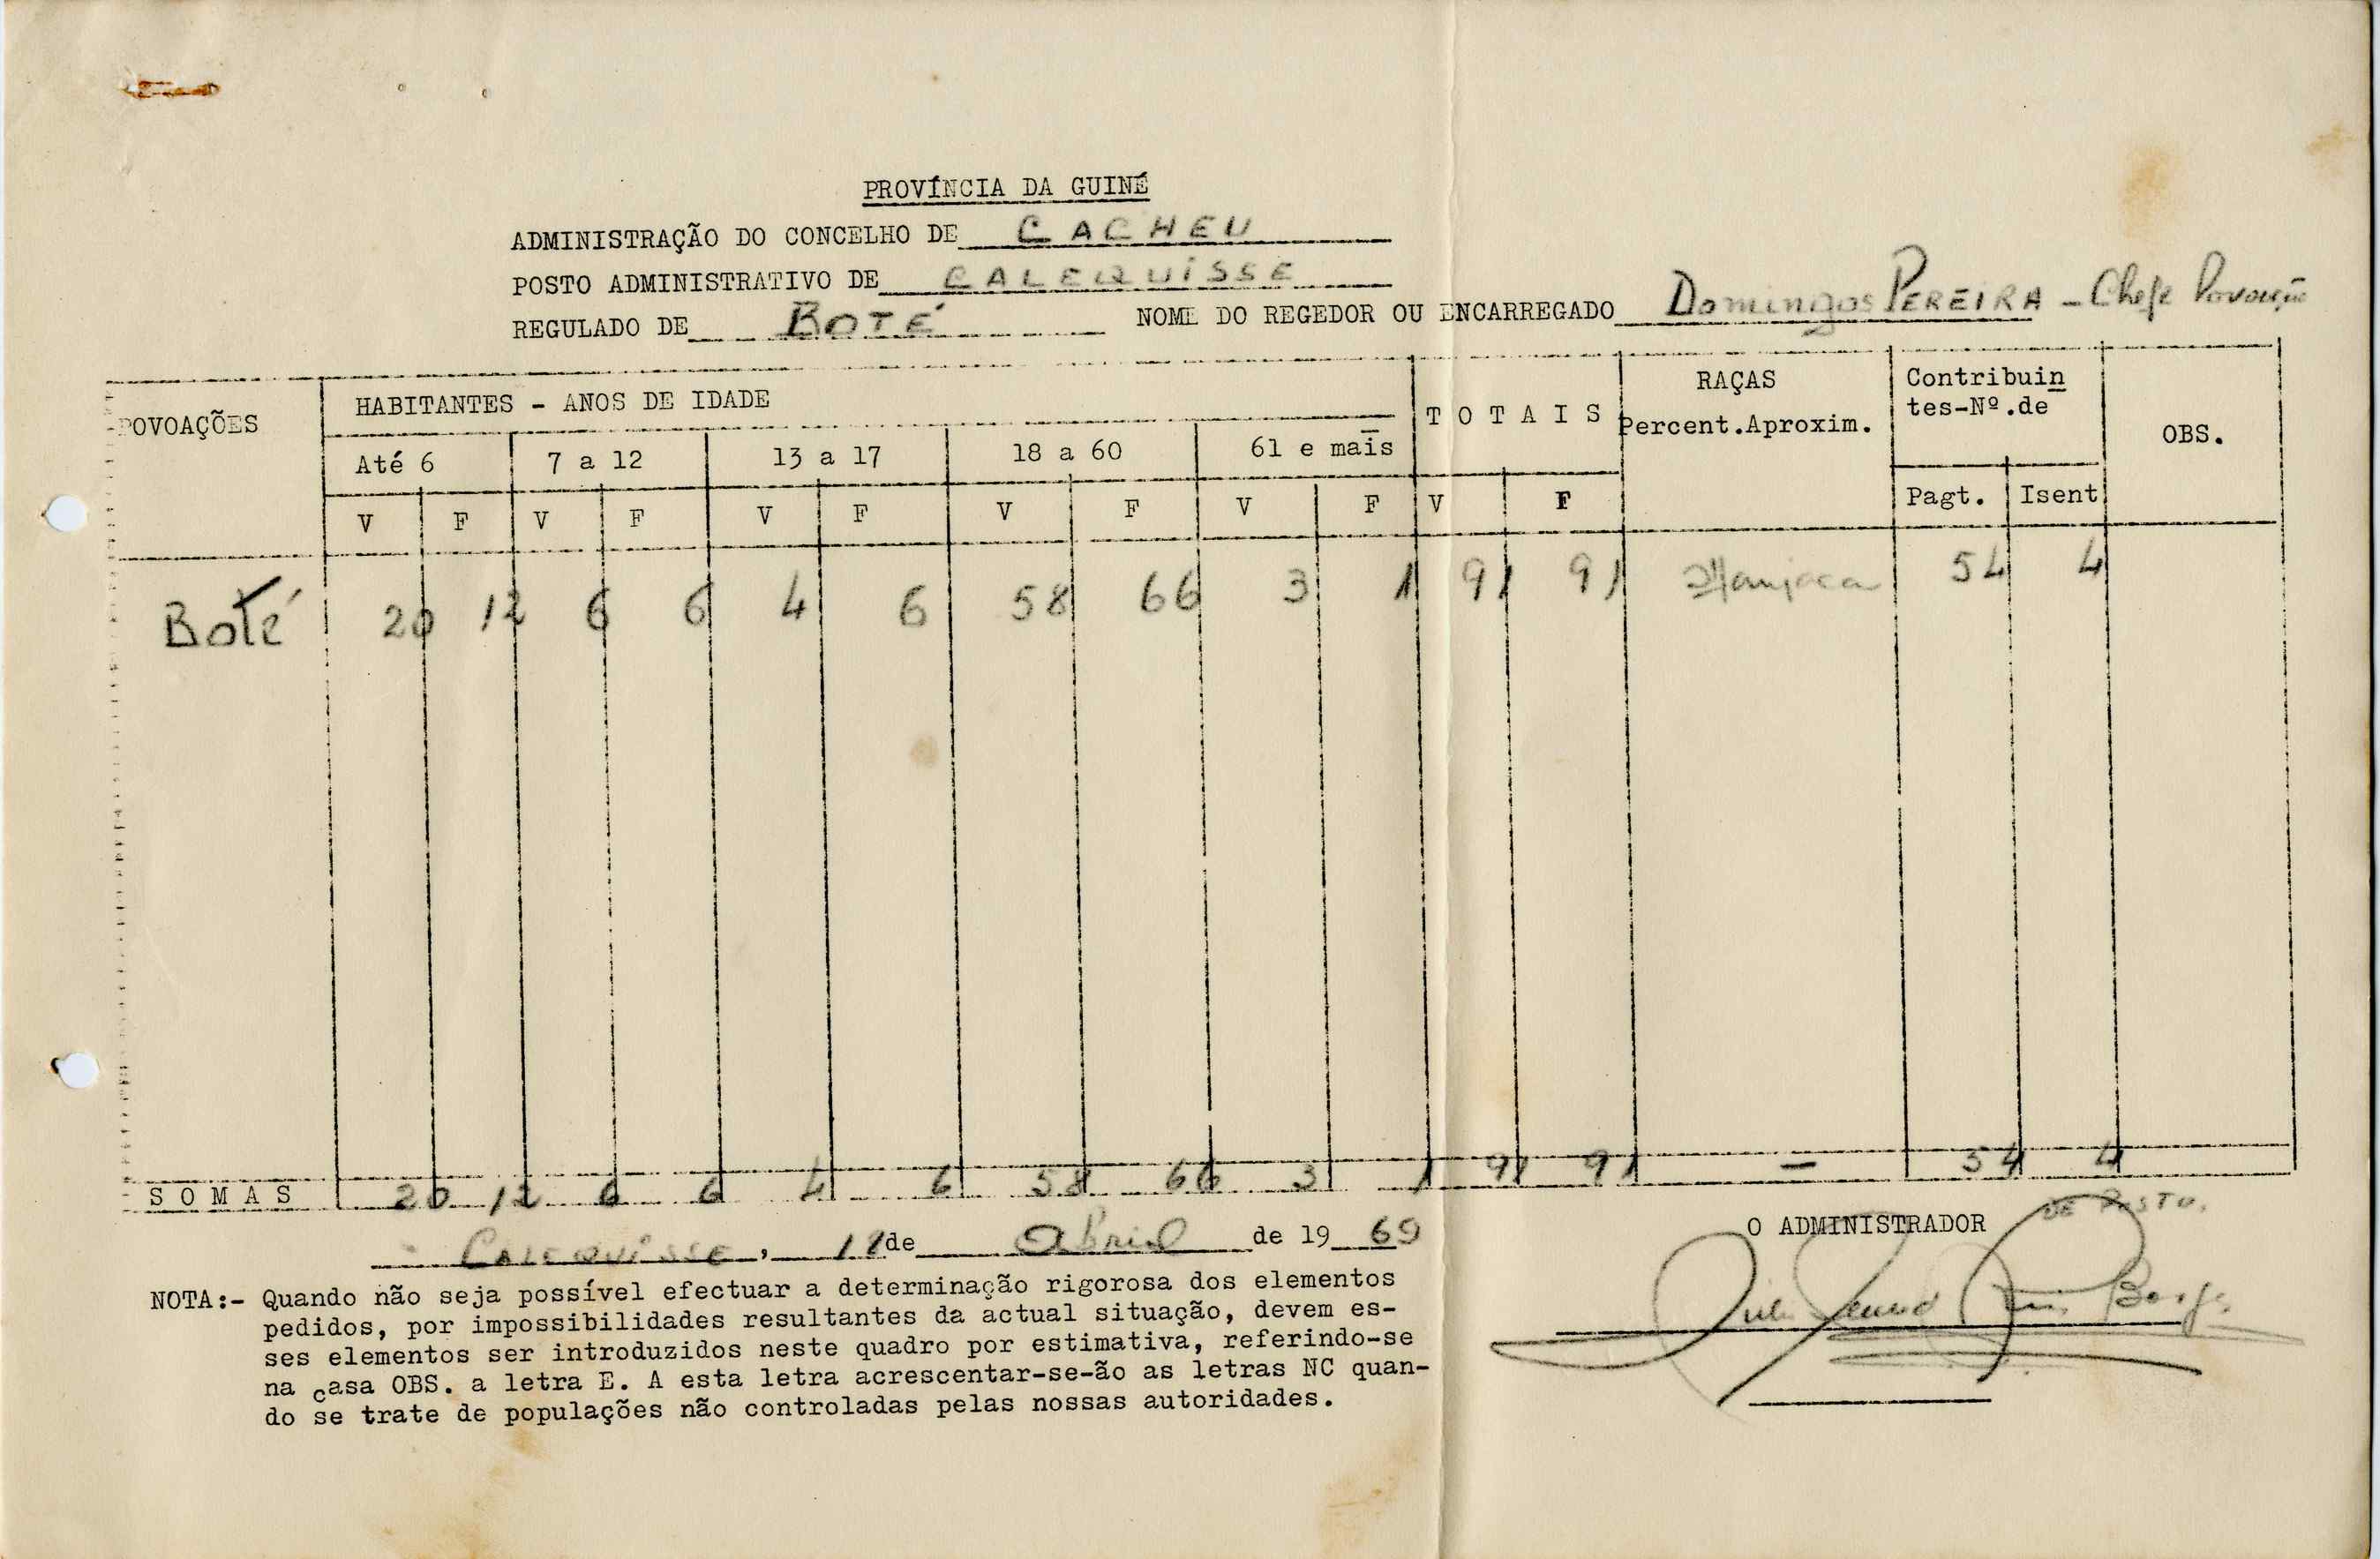 PROVÍNCIA DA GUINÉ
ADMINISTRAÇÃO DO CONCELHO DE CACHEU
POSTO ADMINISTRATIVO DE CALEQUISSE
REGULADO DE BOTÉ NOME DO REGEDOR OU ENCARREGADO Domingos PEREIRA - Chefe Povoação
POVOAÇÕES HABITANTES - ANOS DE IDADE T O T A I S RAÇAS Percent.Aproxim. Contribuin
tes-Nº.de OBS.
Até 6 7 a 12 13 a 17 18 a 60 61 e mais
V F V F V F V F V F V F Pagt. Isent
Boté 20 12 6 6 4 6 58 66 3 1 91 91 Manjaca 54 4
S O M A S 20 12 6 6 4 6 58 66 3 1 91 91 - 54 4
CALEQUISSE, de Abril de 1969
O ADMINISTRADOR DE POSTO.
NOTA:- Quando não seja possível efectuar a determinação rigorosa dos elementos
pedidos, por impossibilidades resultantes da actual situação, devem es-
ses elementos ser introduzidos neste quadro por estimativa, referindo-se
na casa OBS. a letra E. A esta letra acrescentar-se-ão as letras NC quan-
do se trate de populações não controladas pelas nossas autoridades.